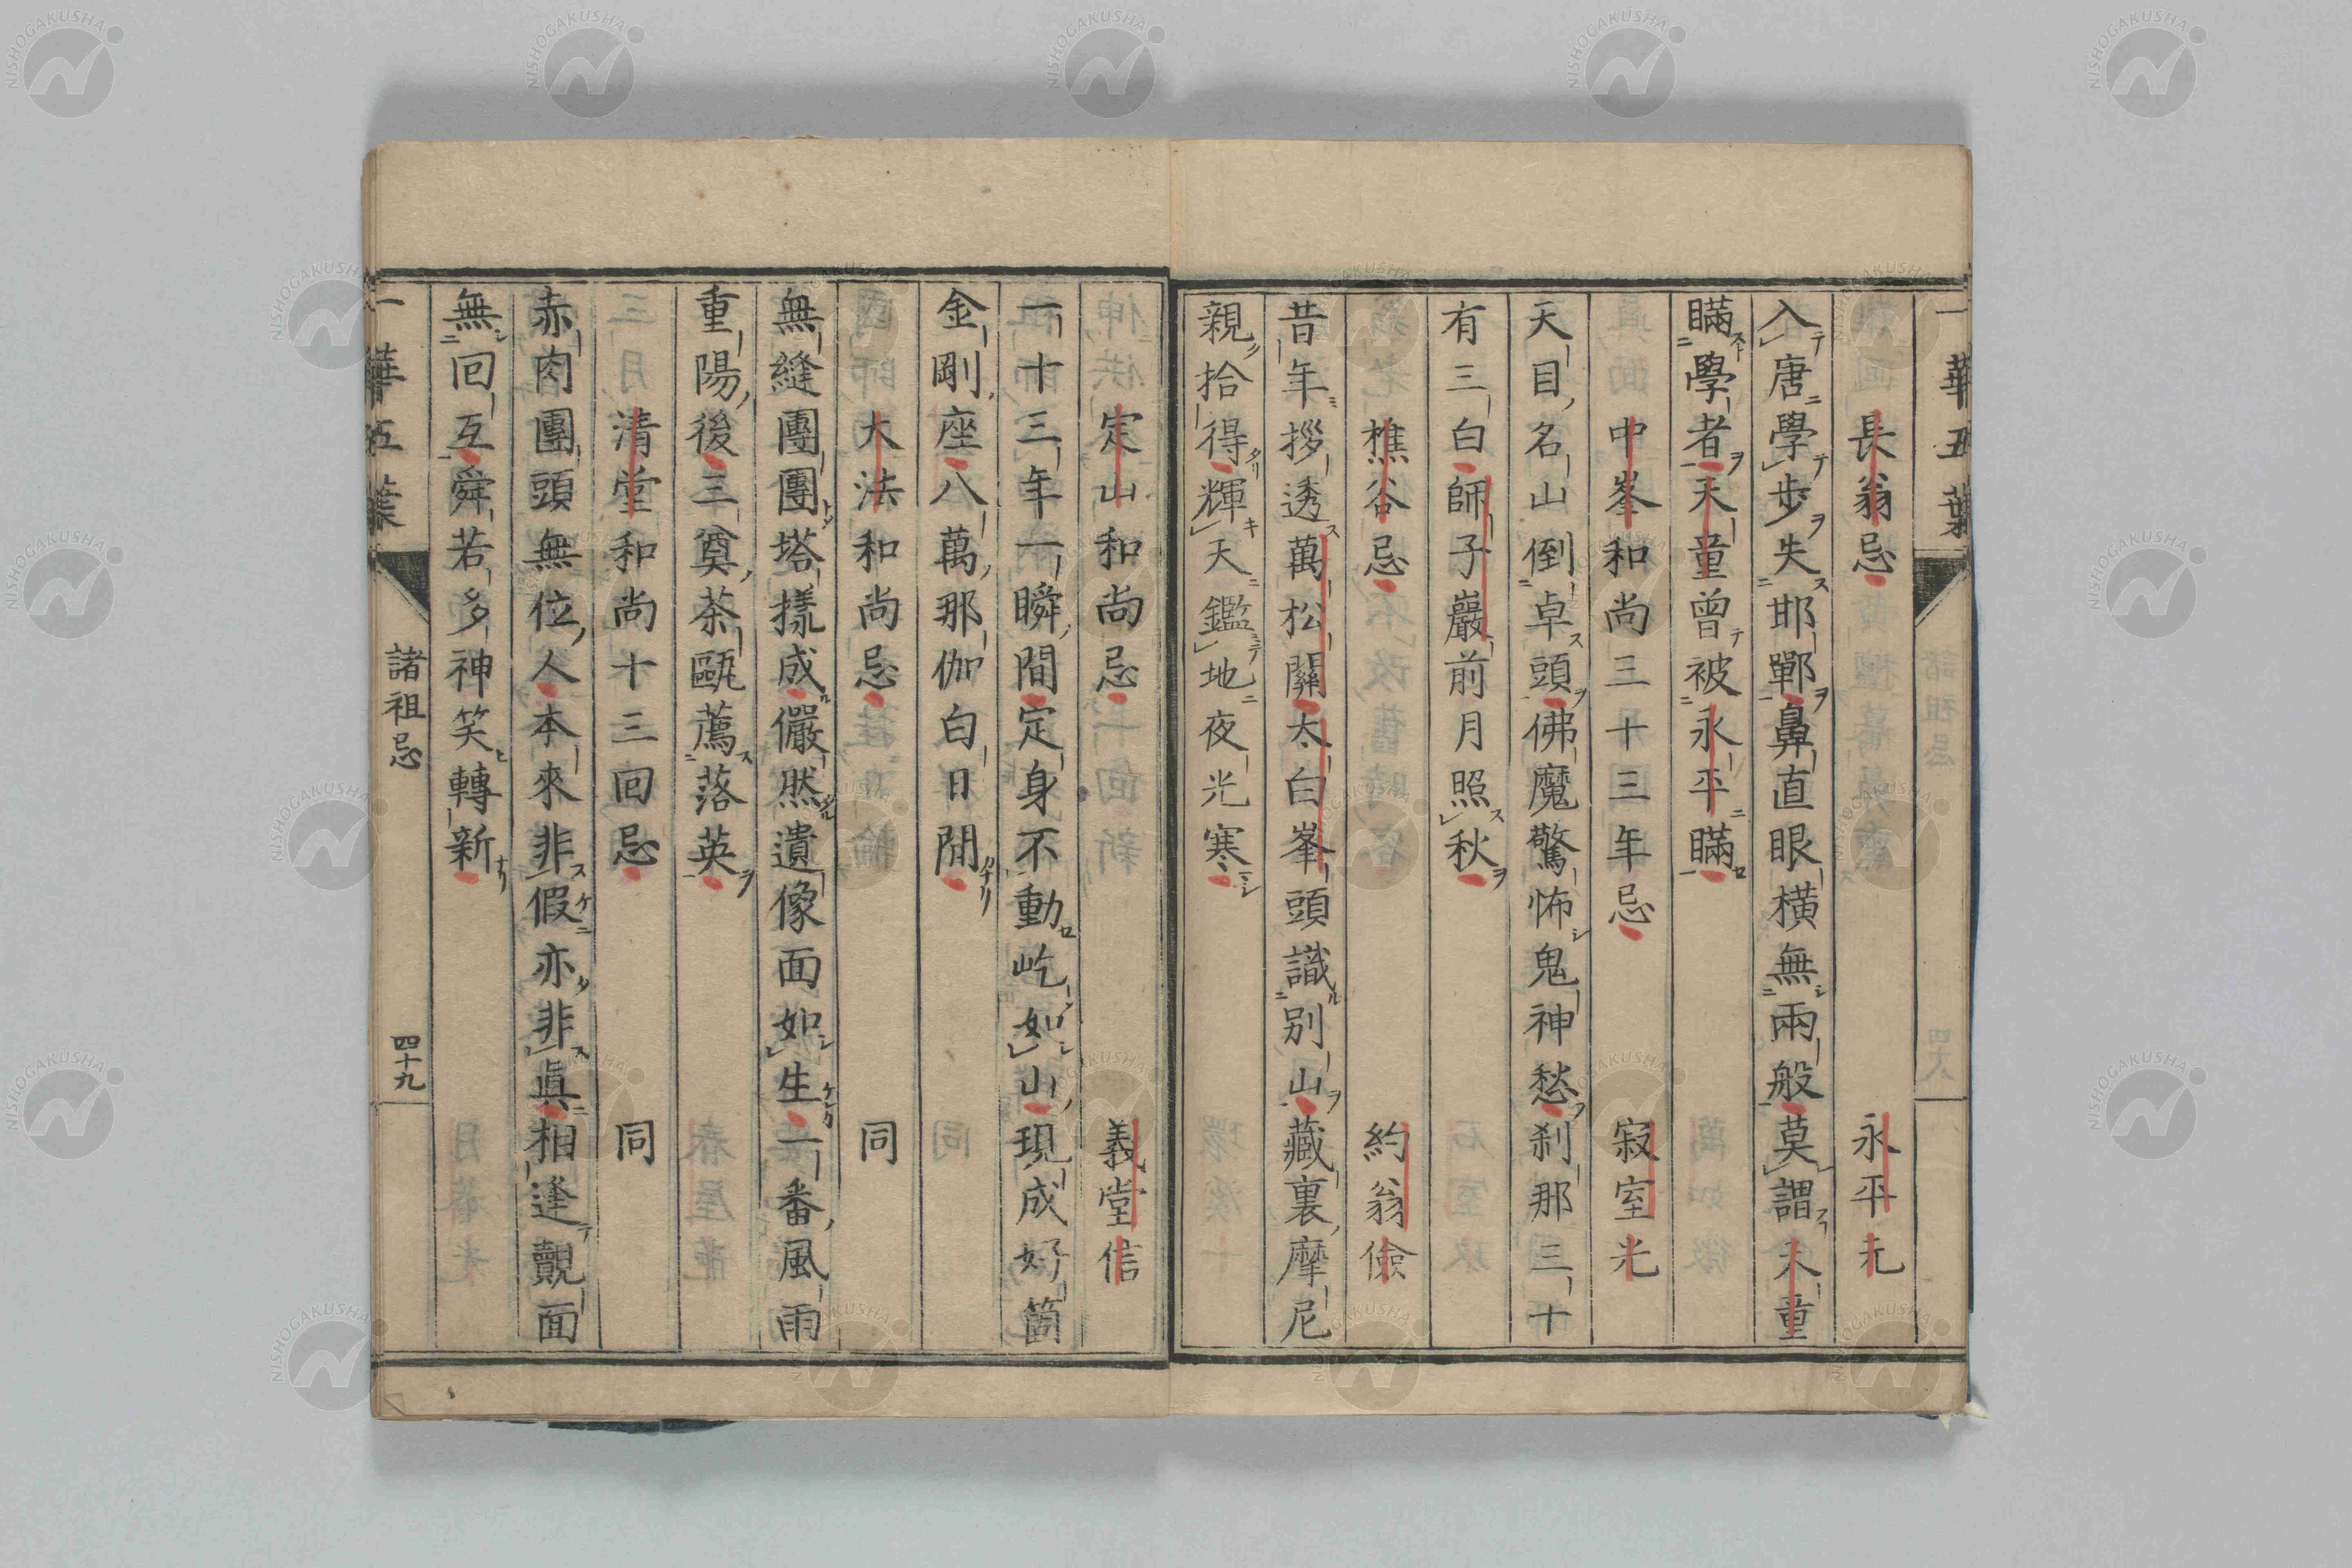 一華五葉
長翁忌 永平元
入唐學步失邯鄲鼻直眼橫無兩般莫謂天童
瞞學者天童曾被永平瞞
中峯和尚三十三年忌 寂室光
天目名山倒卓頭佛魔驚怖鬼神愁刹那三十
有三白師子巖前月照秋
樵谷忌 約翁儉
昔年拶透萬松關太白峯頭識別山藏裏摩尼
親拾得輝天鑑地夜光寒
定山和尚忌 義堂信
一十三年一瞬間定身不動屹如山現成好箇
金剛座八萬那伽白日閒
大法和尚忌 同
無縫團團塔樣成儼然遺像面如生一番風雨
重陽後三奠茶甌薦落英
清堂和尚十三回忌 同
赤肉團頭無位人本來非假亦非眞相逢覿面
無回互舜若多神笑轉新
一華五葉
諸祖忌
四十九
NISHOGAKUSHA